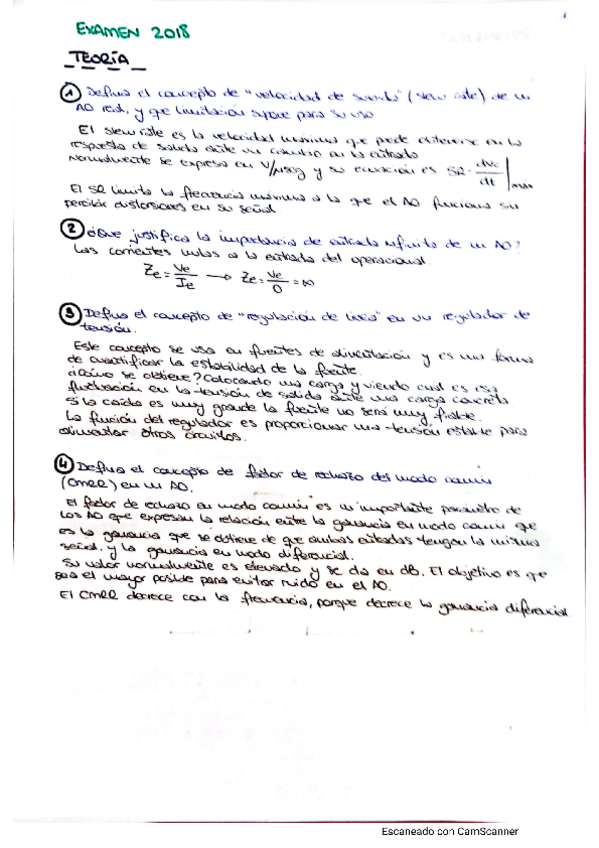 EXAMEN 2018
- TEORÍA -
① Defina el concepto de "velocidad de subida" (slew rate) de un
AO real, y que limitación supone para su uso
El slew rate es la velocidad máxima que puede obtenerse en la
respuesta de salida ante un cambio en la entrada
Normalmente se expresa en V/μseg y su ecuación es SR = dVo/dt |max
El SR limita la frecuencia máxima a la que el AO funciona sin
percibir distorsiones en su señal
② ¿Que justifica la importancia de entrada infinita de un AO?
Las corrientes nulas a la entrada del operacional.
Ze = Ve/Ie → Ze = Ve/0 = ∞
③ Defina el concepto de "regulación de línea" en un regulador de
tensión.
Este concepto se usa en fuentes de alimentación y es una forma
de cuantificar la estabilidad de la fuente.
¿Cómo se obtiene? Colocando una carga y viendo cual es esa
fluctuación en la tensión de salida ante una carga concreta
Si la caída es muy grande la fuente no será muy fiable.
La función del regulador es proporcionar una tensión estable para
alimentar otros circuitos.
④ Defina el concepto de factor de rechazo del modo común
(CMRR) en un AO.
El factor de rechazo en modo común es un importante parámetro de
los AO que expresan la relación entre la ganancia en modo común que
es la ganancia que se obtiene de que ambas entradas tengan la misma
señal. y la ganancia en modo diferencial.
Su valor normalmente es elevado y se da en dB. El objetivo es que
sea el mayor posible para evitar ruido en el AO.
El CMRR decrece con la frecuencia, porque decrece la ganancia diferencial
Escaneado con CamScanner